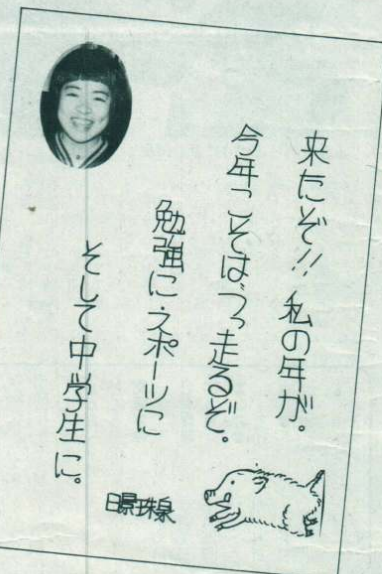 来たぞ!! 私の年が。
今年こそはつっ走るぞ。
勉強に・スポーツに
そして中学生に。
日景珠泉